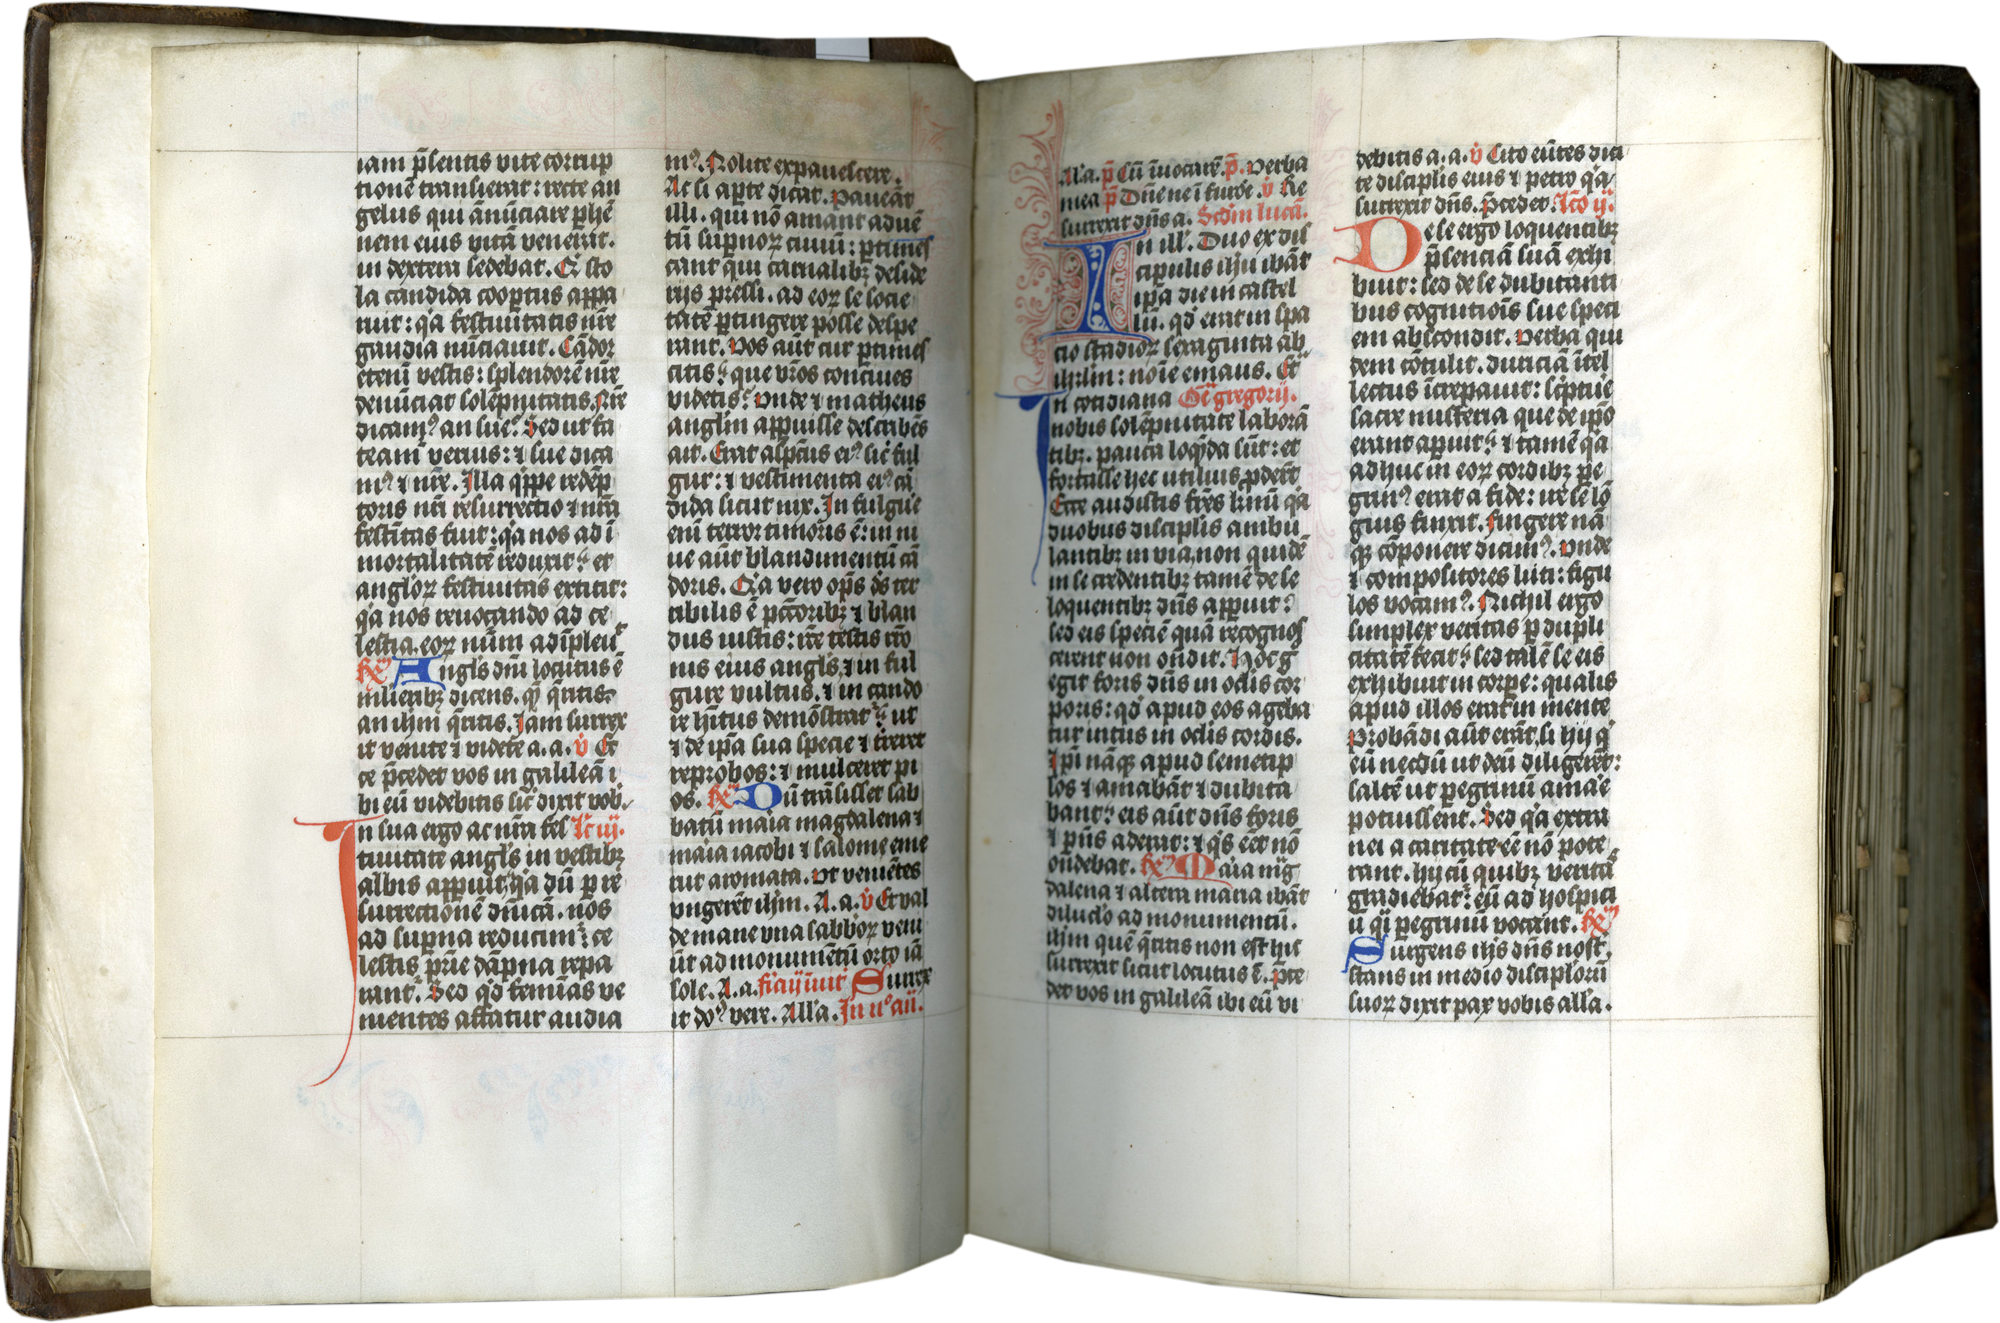 iam p̄sentis vite corrup
tionē transierat: recte an
gelus qui ānūciare ꝑhēn
nem eius vitā venerat.
in dextera sedebat. Qi sto
la candida cooptus appa
ruit: qͥa festiuitatis nr̄e
gaudia nūciauit. Cādor
etenī vestis: splendorē nr̄e
denūciat solēpnitatis. Nr̄e
dicamꝰ an sue? Sed ut fa
team̄ verius: ⁊ sue dica
mꝰ ⁊ nr̄e. Illa qͥppe redēp
toris nr̄i resurrectio ⁊ nr̄a
festiītas fuit: qͥa nos ad ī
mortalitatē reduxit: et
anglor̄ꝫ festiuitas extitit:
qͥa nos reuocando ad ce
lestia. eorꝫ nūm adīpleuͥ.
R̄x Angl̄s dn̄i locutus ē
mlieribꝫ dicens. qē q̄ritis.
an ihm̄ q̄ritis. Iam surrex
it venite ⁊ videte a. a. v̄ Ec
ce p̄cedet vos in galileā i
bi eū videbitis sic̄ dixit vob̄.
In sua ergo ac nr̄a fes Lc̄ iij.
tiuitate angl̄s in vestibꝫ
albis apparuit: qͥa dū ꝑ re
surrectionē dn̄icā. nos
ad suꝑna reducimꝰ: ce
lestis pr̄ie dāpna repa
rant̄. Sed qd̄ feminas ve
nientes affatur audia
mꝰ. Nolite expauescere.
Ac si aꝑte dicat. Paueāt
illi. qui nō amant aduē
tū suꝑnorꝫ ciuiū: ꝑtimes
cant qui carnalibꝫ deside
rijs pressi. ad eorꝫ se socie
tatē ꝑtingere posse despe
rant. Vos aūt cur ꝑtimes
citis: que vr̄os conciues
videtis? Unde ⁊ matheus
angl̄m apparuisse describēs
ait. Erat aspc̄tus eiꝰ sic̄ ful
gur: ⁊ vestimenta eiꝰ cā
dida sicut nix. In fulgu͛e
enī terror timoris ē: in ni
ue aūt blandimentū cā
doris. Qͥa vero opn̄s ds̄ ter
ribilis ē pcc̄oribꝫ ⁊ blan
dus iustis: rc̄e testis rc̄o
nis eius angl̄s, ⁊ in ful
gure vultus. ⁊ in cando
re hītus demōstratᷣ: ut
⁊ de ip̄a sua specie ⁊ t͛reret
reprobos: ⁊ mulceret pi
os. R̄x Dū trāsisset sab
batū maia magdalena ⁊
maia iacobi ⁊ salome eme
rut aromata. Ut veniētes
vngerēt ihm̄. A. a. v̄ Et val
de mane vna sabbor̄ꝫ veni
ūt ad monumētū orto iā
sole. A. a. Surre
it doꝰ vere. All̄a. In iiº
All̄a. p̄ Cū īuocarē. p̄. Verba
mea p̄ Dn̄e ne ī furōe. v̄ Re
surrexit dn̄s a. Scd̄m lucā.
In ill̄. Duo ex dis
cipulis ihu ibāt
ip̄a die in castel
lū. qd̄ erat in spa
cio stadiorꝫ sexaginta ab
ihrl̄m: noīe emaus. Et
Om̄ gregorij.
In cotidiana
nobis solēpnitate laborā
tibꝫ. pauca loqn̄da sūt: et
fortasse hec utilius ꝓderūt
Ecce audistis fr̄es kmī qͥa
duobus discipl̄is ambu
lantibꝫ in via, non quidē
in se credentibꝫ tamē de se
loquentibꝫ dn̄s apparuit:
sed eis speciē quā recognos
cerent non ondit. Hoc g̊
egit foris dn̄s in oclis cor
poris: qd̄ apud eos ageba
tur intus in oclis cordis.
Ipi nāqꝫ apud semetip
sos ⁊ amabāt ⁊ dubita
bant: eis aūt dn̄s foris
⁊ pn̄s aderat: ⁊ qͥs eēt nō
ondebat. R̄x Maia mg̅
dalena ⁊ altera maria ibāt
diluclo ad monumentū.
ihm̄ quē q̄ritis non est hic
surrexit sicut locutus ē. p̄ce
det vos in galileā ibi eū vi
debitis a. a. v̄ Cito eūtes dici
te discipl̄is eius ⁊ petro qͥa
surrexit dn̄s. p̄cedet. Lc̄o ij.
De se ergo loquentibꝫ
p̄senciā suā exhi
buit: sed de se dubitanti
bus cognitiois sue speci
em abscondit. Verba qui
dem cōtulit. duriciā ītel
lectus īcrepauit: sc̄ptu͛e
sacre misteria que de ip̄o
erant aꝑuit: ⁊ tamē qͥa
adhuc in eorꝫ cordibꝫ ꝑe
grinꝰ erat a fide: ire se lō
gius finxit. Fingere nā
qꝫ cōponere dicimꝰ. Unde
⁊ compositores luti: figu
los vocamꝰ. Nichil ergo
simplex veritas ꝑ dupli
citatē fecit: sed talē se eis
exhibuit in corꝑe: qualis
apud illos erat in mente
Probādi aūt erāt, si hij qͥ
eū necdū ut deū diligerēt:
saltē ut ꝑegrinū amae
potuissent. Sed qͥa extra
nei a caritate eē nō pote
rant. hij cū quibꝫ veritas
gradiebatᷣ: eū ad hospici
ū qͥ ꝑegrinū vocant. R̄x
Surgens ihs̄ dn̄s nost̄.
stans in medio disciplorū
suorꝫ dixit pax vobis all̄a.